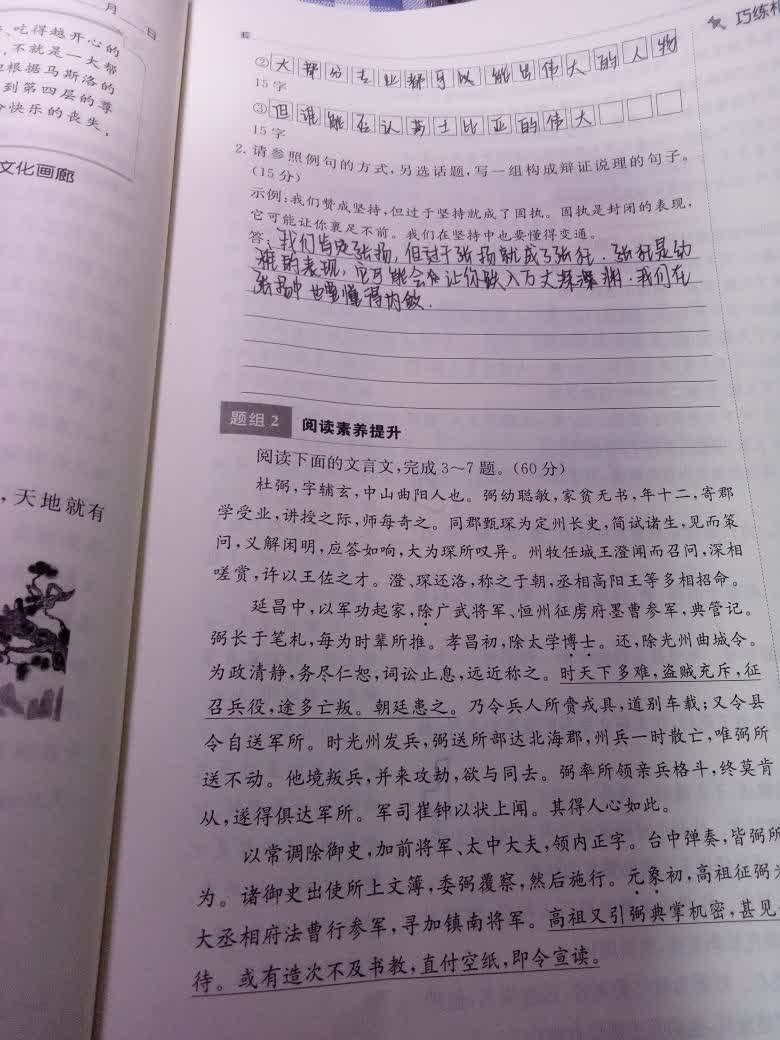 月 日
、吃得越开心的
,不就是一大帮
根据马斯洛的
到第四层的尊
快乐的丧失,
文化画廊
,天地就有
巧练
②大部分专业都可以能出伟大的人物
15字
③但谁能否认莎士比亚的伟大
15字
2.请参照例句的方式,另选话题,写一组构成辩证说理的句子。
(15分)
示例:我们赞成坚持,但过于坚持就成了固执。固执是封闭的表现,
它可能让你裹足不前。我们在坚持中也要懂得变通。
答:我们肯定张扬,但过于张扬就成了张狂.张狂是幼
稚的表现,它可能会让你跌入万丈深渊.我们在
张扬中也要懂得内敛.
题组2 阅读素养提升
阅读下面的文言文,完成3~7题。(60分)
杜弼,字辅玄,中山曲阳人也。弼幼聪敏,家贫无书,年十二,寄郡
学受业,讲授之际,师每奇之。同郡甄琛为定州长史,简试诸生,见而策
问,义解闲明,应答如响,大为琛所叹异。州牧任城王澄闻而召问,深相
嗟赏,许以王佐之才。澄、琛还洛,称之于朝,丞相高阳王等多相招命。
延昌中,以军功起家,除广武将军、恒州征虏府墨曹参军,典管记。
弼长于笔札,每为时辈所推。孝昌初,除太学博士。还,除光州曲城令。
为政清静,务尽仁恕,词讼止息,远近称之。时天下多难,盗贼充斥,征
召兵役,途多亡叛。朝廷患之。乃令兵人所赍戎具,道别车载;又令县
令自送军所。时光州发兵,弼送所部达北海郡,州兵一时散亡,唯弼所
送不动。他境叛兵,并来攻劫,欲与同去。弼率所领亲兵格斗,终莫肯
从,遂得俱达军所。军司崔钟以状上闻。其得人心如此。
以常调除御史,加前将军、太中大夫,领内正字。台中弹奏,皆弼所
为。诸御史出使所上文簿,委弼覆察,然后施行。元象初,高祖征弼为
大丞相府法曹行参军,寻加镇南将军。高祖又引弼典掌机密,甚见
待。或有造次不及书教,直付空纸,即令宣读。